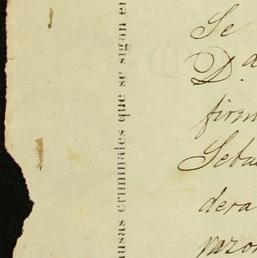 ausas criminales que se sigan en
Se
D.ª
firm
Seba
dera
razon